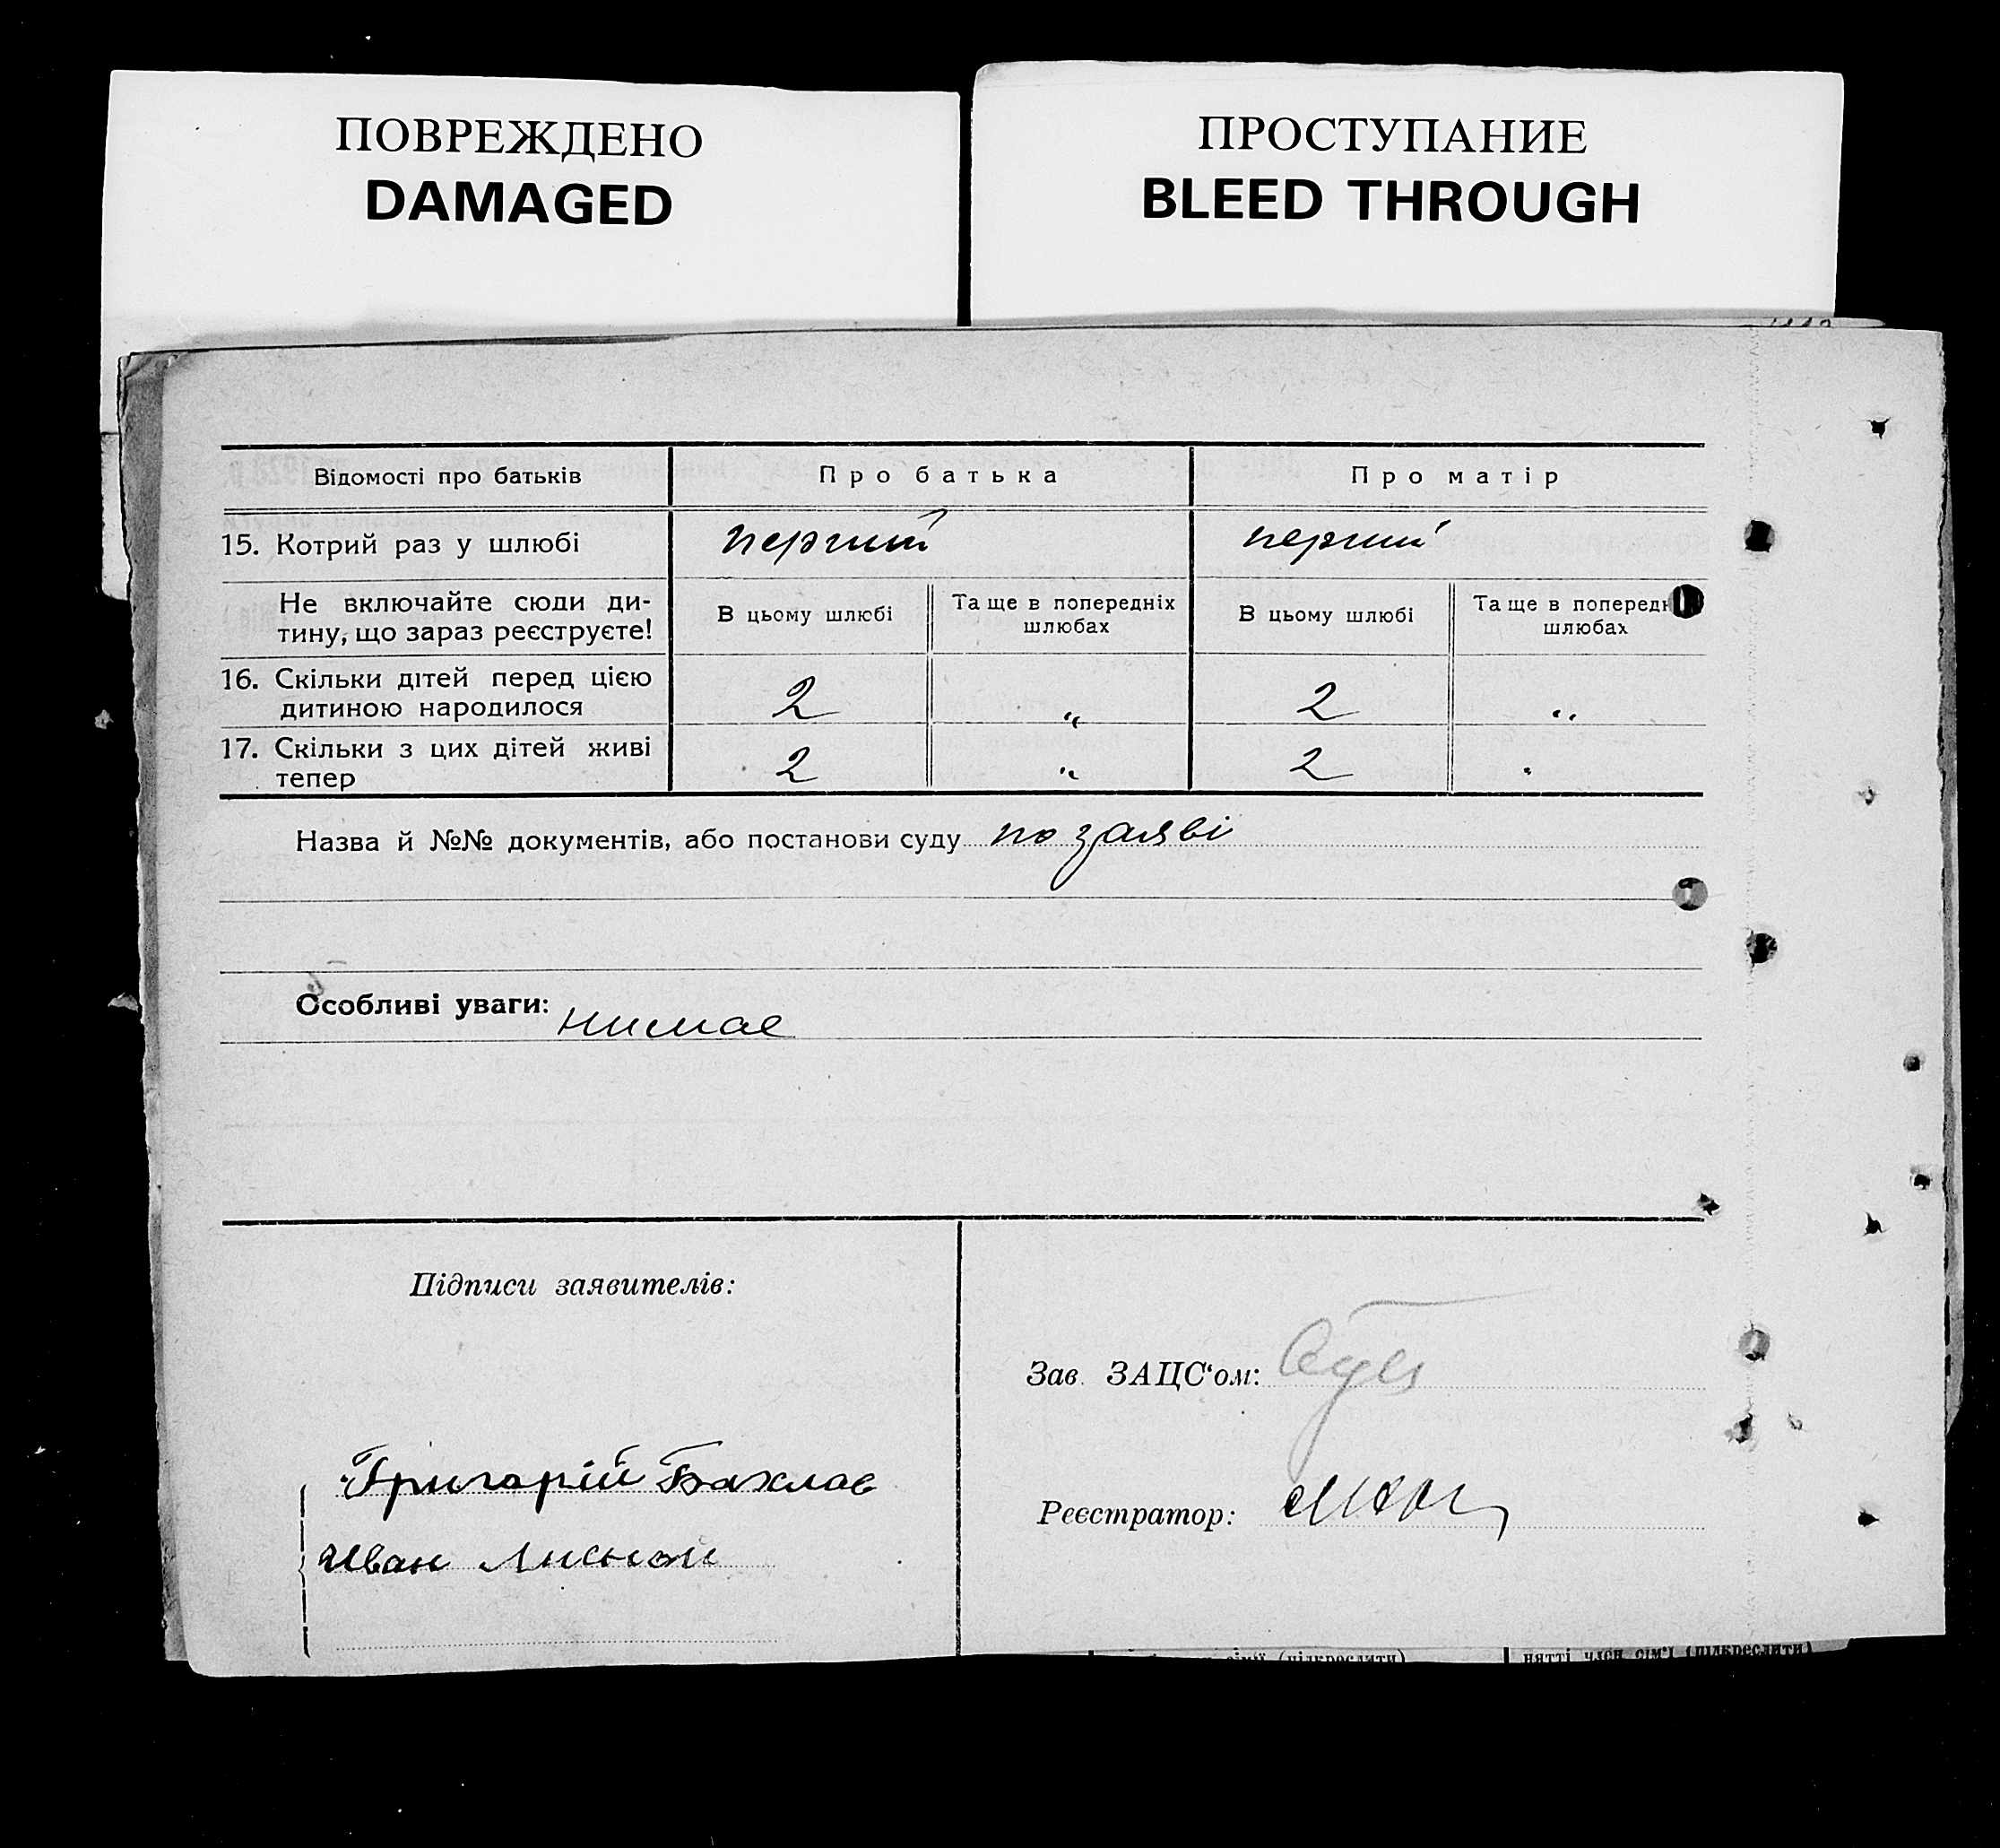 ПОВРЕЖДЕНО
DAMAGED
ПРОСТУПАНИЕ
BLEED THROUGH
Відомості про батьків Про батька Про матір
15. Котрий раз у шлюбі перший перший
Не включайте сюди ди-
тину, що зараз реєструєте!
В цьому шлюбі
Та ще в попередніх
шлюбах
В цьому шлюбі
Та ще в попередн
шлюбах
16. Скільки дітей перед цією
дитиною народилося 2 " 2 "
17. Скільки з цих дітей живі
тепер 2 " 2 "
Назва й №№ документів, або постанови суду по заяві
Особливі уваги: нимає
Підписи заявителів:
Григорій Бахлає
Иван
Зав. ЗАЦС'ом:
Реєстратор:
(підкреслити)
нятті член сім'ї (підкреслити)